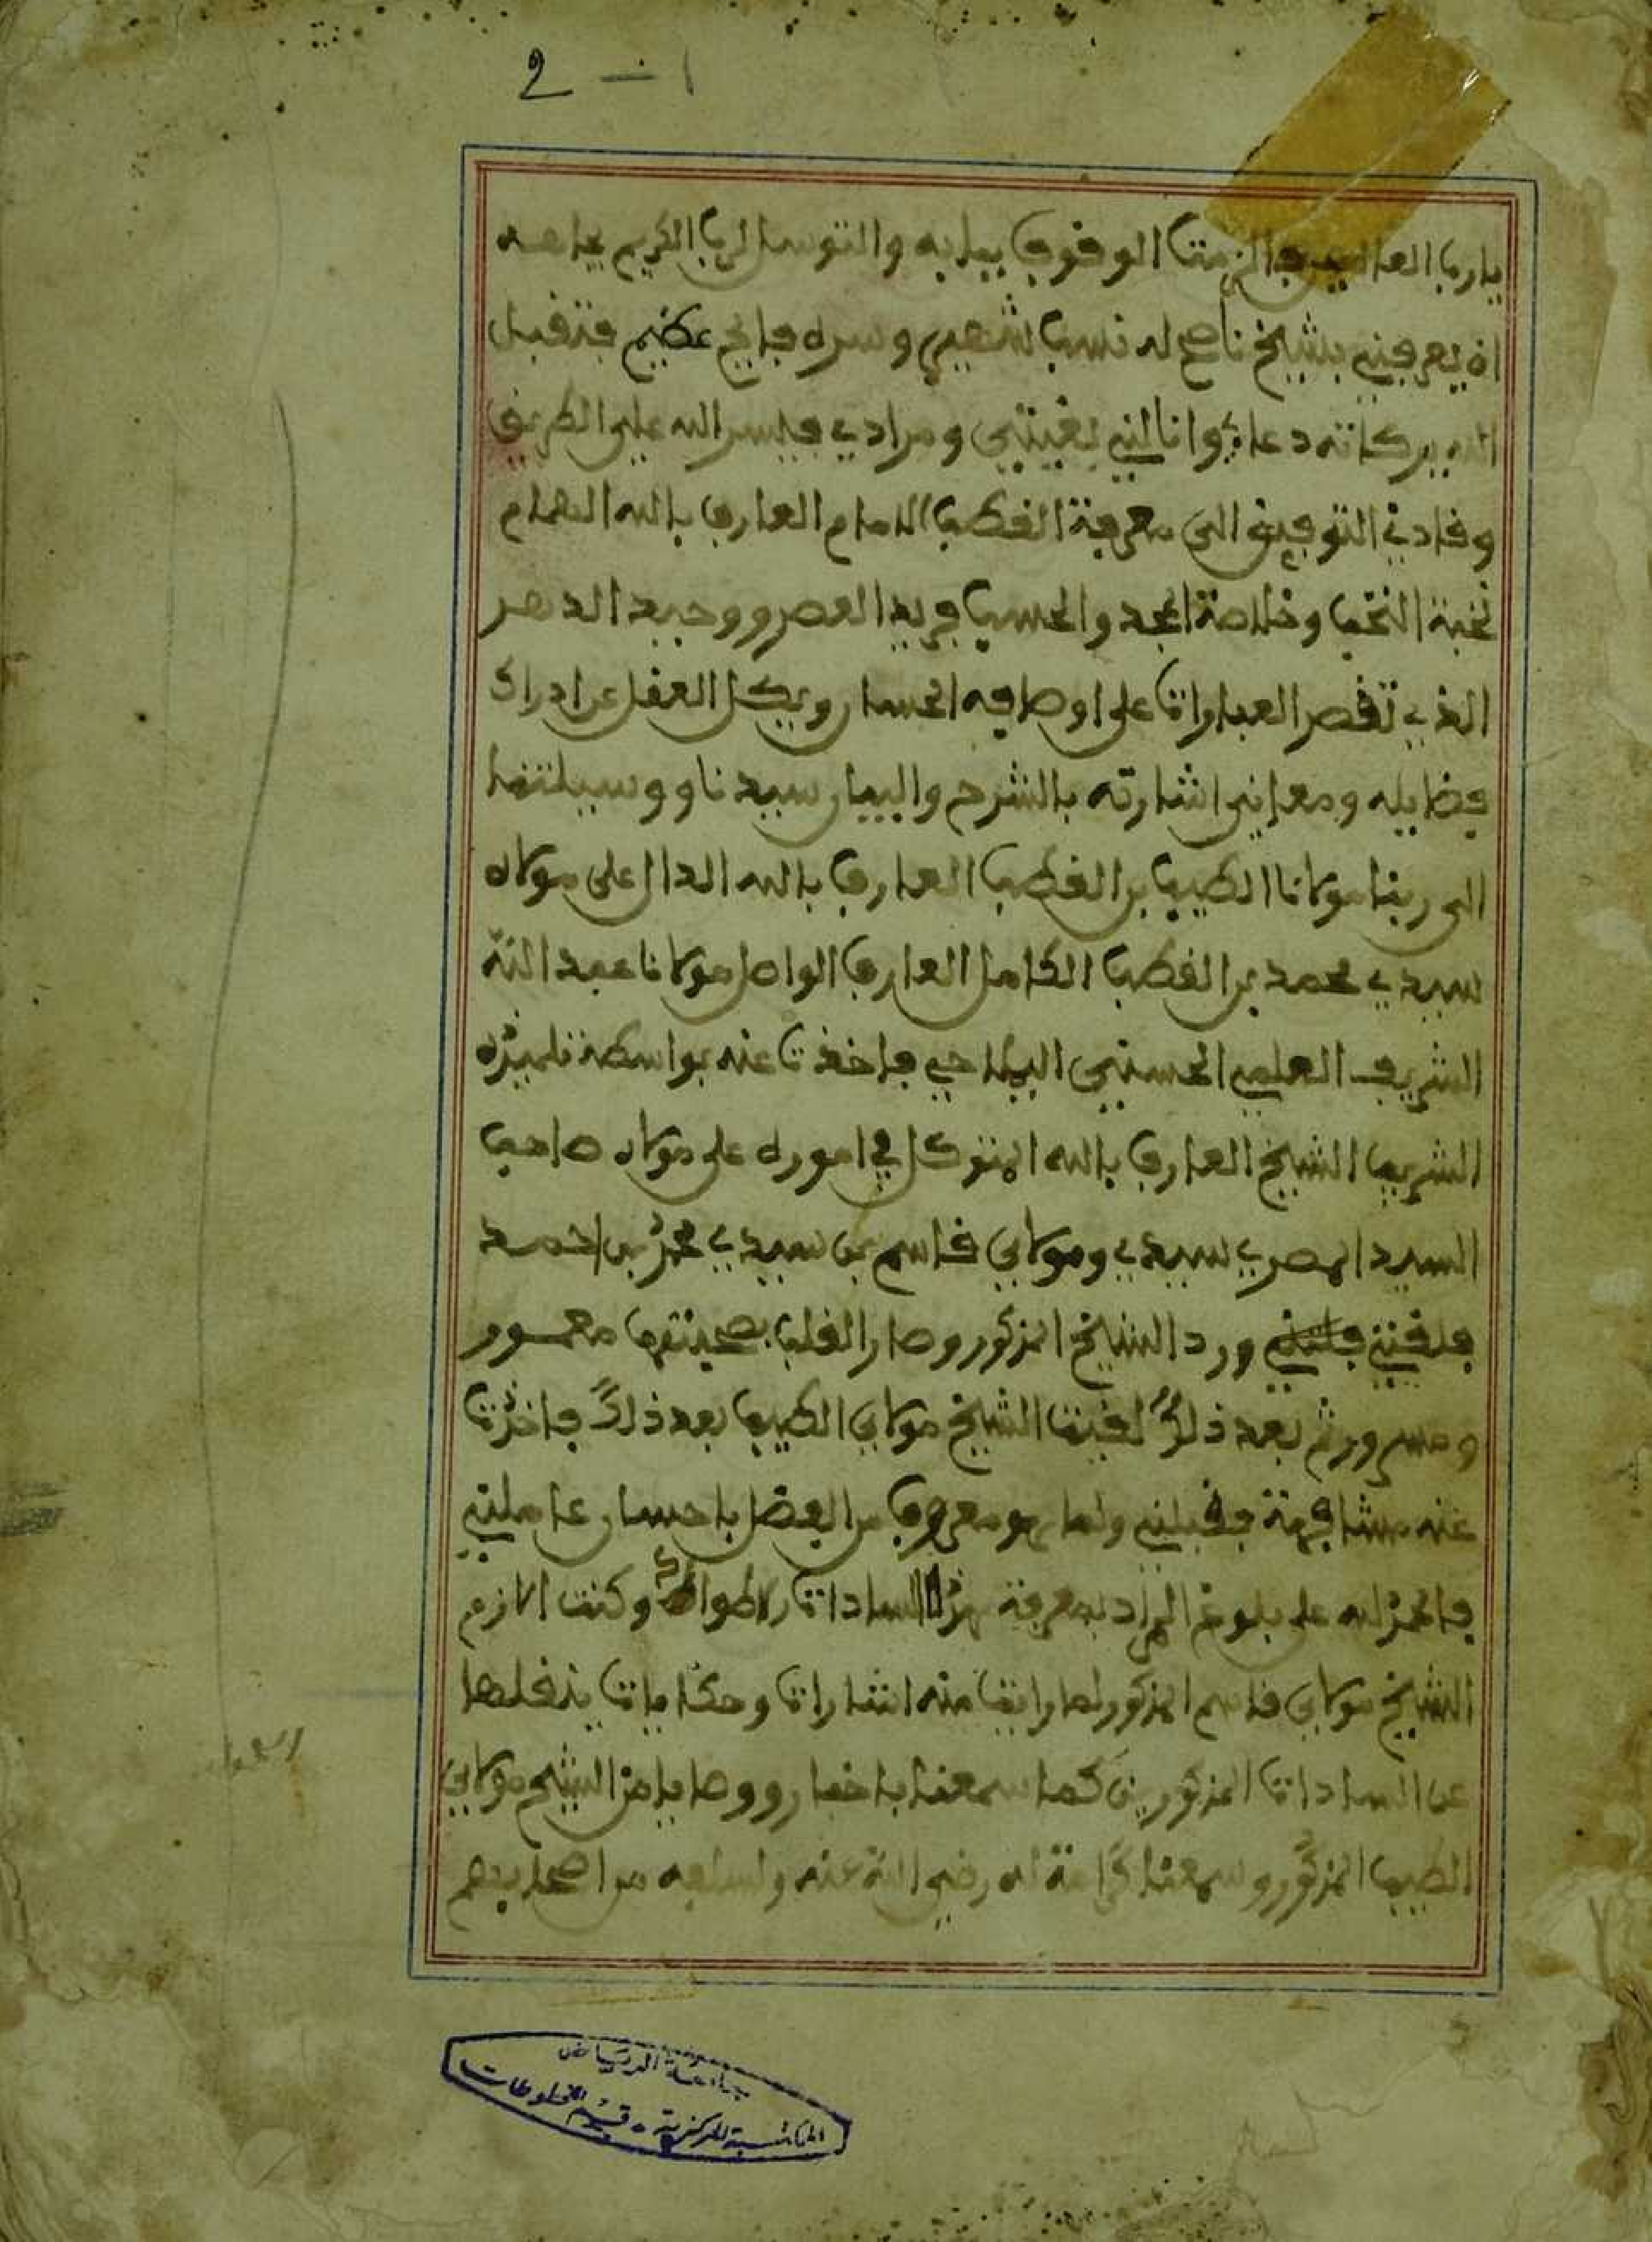 2 — ١
يارب العالمين فالزمت الوقوف ببابه والتوسل لرب الكريم بجاهه
ان يعرفني بشيخ ناصح له نسب شهير وسره فايح عظيم فتقبل
الله ببركاته دعاي وانالني بغيتي ومرادي فيسر الله علي الطريق
وقادني التوفيق الى معرفة القطب الامام العارف بالله الهمام
نخبة النخب وخلاصة المجد والحسب فريد العصر ووحيد الدهر
الذي تقصر العبارات على اوصافه الحسان ويكل العقل عن ادراك
فضايله ومعاني اشارته بالشرح والبيان سيدنا ووسيلتنا
الى ربنا مولانا الطيب بن القطب العارف بالله الدال على مولاه
سيدي محمد بن القطب الكامل العارف الواصل مولانا عبد الله
الشريف العلمي الحسني اليملاحي فاخذت عنه بواسطة تلميذه
الشريف الشيخ العارف بالله المتوكل في اموره على مولاه صاحب
السر المصري سيدي ومولاي قاسم بن سيدي محمد بن احمد
فلقنني ورد الشيخ المذكور وصار القلب بصحبتهما معمور
ومسرور ثم بعد ذلك لقيت الشيخ مولاي الطيب بعد ذلك فاخذت
عنه مشافهة فقبلني ولما هو معروف من الفضل باحسان عاملني
فالحمد لله على بلوغ المراد بمعرفة هذا السادات الاطواد وكنت الازم
الشيخ مولاي قاسم المذكور لما رايت منه اشارات وحكايات ينقلها
عن السادات المذكورين كما سمعنا باخبار ووصايا من الشيخ مولاي
الطيب المذكور وسمعنا كرامة له رضي الله عنه ولسلفه من اصحابهم
جامعة الرياض
المكتبة المركزية - قسم المخطوطات